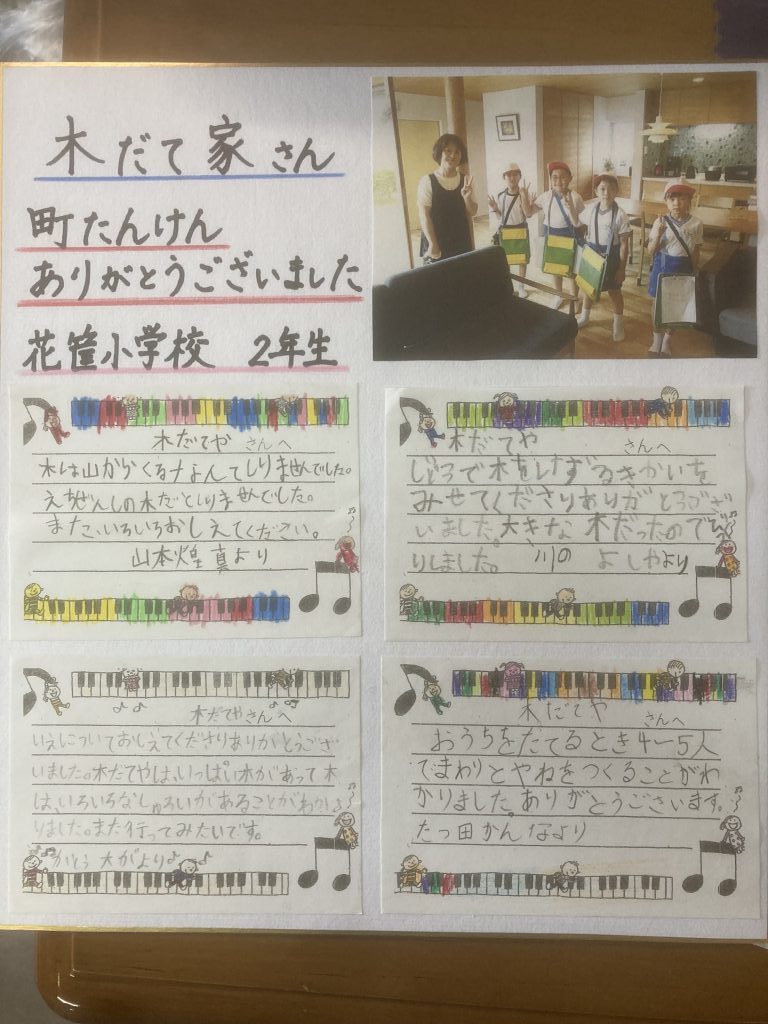 木だて家さん
町たんけん
ありがとうございました
花筐小学校 2年生
木だてや さんへ
木は山からくるなんてしりませんでした。
えちぜんしの木だとしりませんでした。
また、いろいろおしえてください。
山本煌真より
木だてや さんへ
じどうで木をけずるきかいを
みせてくださりありがとうござ
いました。大きな木だったのでびっく
りしました。 川の よしやより
木だてやさんへ
いえについておしえてくださりありがとうござ
いました。木だてやは、いっぱい木があって木
は、いろいろなしゅるいがあることがわか
りました。また行ってみたいです。
かとう 大がより
木だてや さんへ
おうちをたてるとき4〜5人
でまわりとやねをつくることがわ
かりました。ありがとうございます。
たつ田かんなより